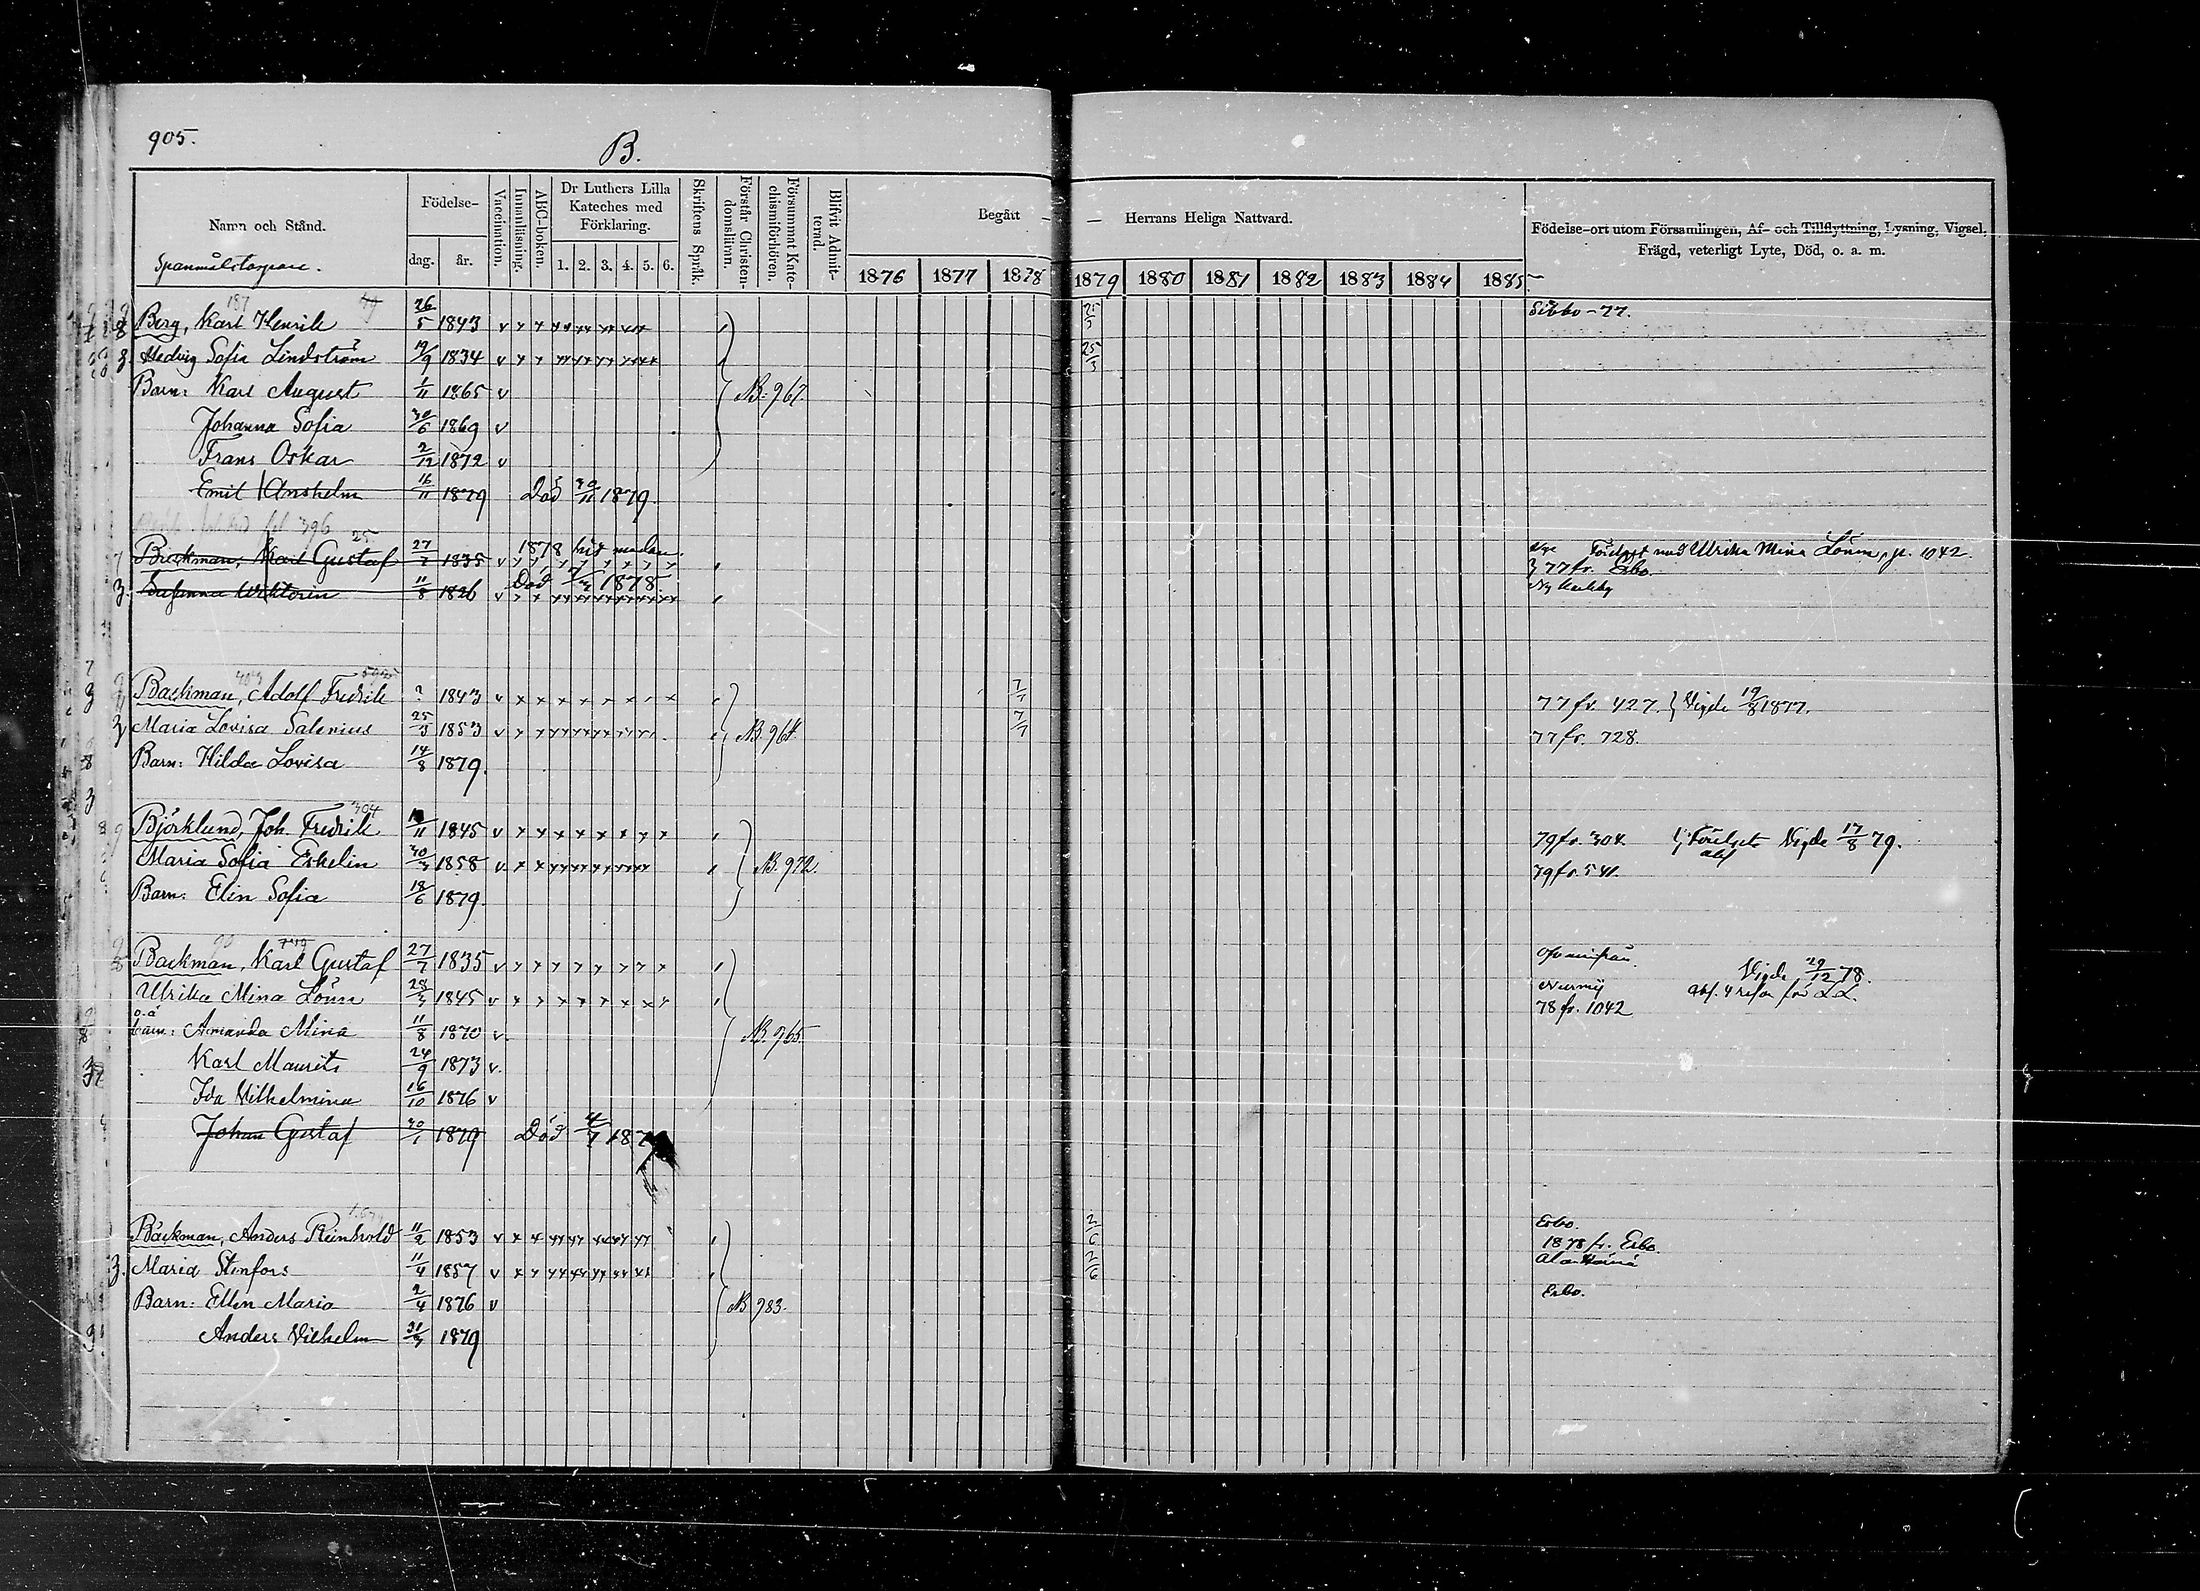 905.
B.
Namn och Stånd.
Födelse-
dag.
år.
Vaccination.
Innanläsning.
ABC-boken.
Dr Luthers Lilla
Kateches med
Förklaring.
1. 2. 3. 4. 5. 6.
Skriftens Språk.
Förstår Christen-
domsläran.
Försummat Kate-
chismiförhören.
Blifvit Admit-
terad.
Begått — — Herrans Heliga Nattvard.
1876 1877 1878 1879 1880 1881 1882 1883 1884 1885
Födelse-ort utom Församlingen, Af- och Tillflyttning, Lysning, Vigsel,
Frägd, veterligt Lyte, Död, o. a. m.
Spanmålstorpare.
187
Berg, Karl Henrik 26/5 1843 v Sibbo - 77.
Hedvig Sofia Lindström 19/9 1834 v 25/3
Barn: Karl August 1/11 1865 v N. 967.
Johanna Sofia 30/6 1869 v
Frans Oskar 2/12 1872 v
Emil Anshelm 16/11 1879 Död 30/11 1879.
396
25
Backman, Karl Gustaf 27/7 1835 v 1878 med Ulrika Mina Lönn, p. 1042
77 fr. Esbo.
Susanna Wiktorin 11/8 1826 v Död 1878.
403
Backman, Adolf Fredrik ? 1843 v 7/7 77 fr. 427. Vigde 19/8 1877.
Maria Lovisa Salenius 25/3 1853 v N. 964. 7/7 77 fr. 728.
Barn: Hilda Lovisa 14/8 1879.
304
Björklund, Joh. Fredrik 1845 v 79 fr. 304 Vigde 17/8 79.
Maria Sofia Eskelin 30/3 1858 v N. 972. 79 fr. 541.
Barn: Elin Sofia 18/6 1879.
Backman, Karl Gustaf 27/7 1835 v ofvanifrån. Vigde 29/12 78.
Ulrika Mina Lönn 28/3 1845 v Nurmij
78 fr. 1042
o.ä
barn: Amanda Mina 11/8 1870 v. N. 965.
Karl Maurits 24/9 1873 v.
Ida Vilhelmina 16/10 1876 v
Johan Gustaf 30/1 1879 Död 4/7 187
Bäckman, Anders Reinhold 11/2 1853 v 2/6 Esbo.
1878 fr. Esbo.
Maria Stenfors 11/4 1857 v 2/6
Barn: Ellen Maria 2/4 1876 v N 983. Esbo.
Anders Vilhelm 31/3 1879